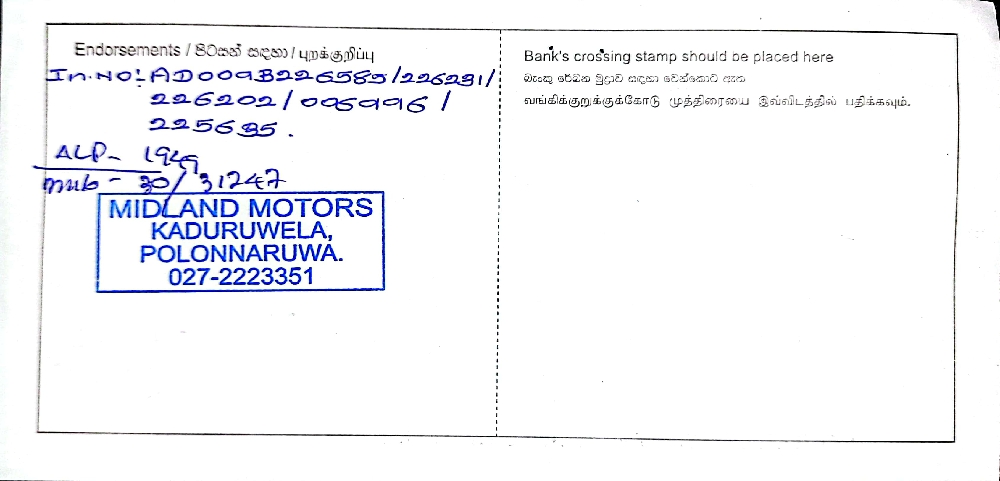 Endorsements / පිටසන් සඳහා / புறக்குறிப்பு
In.NO: AD009B226585/226231/
226202/006996/
225635.
ALP- 1949
mub - 30/31247
MIDLAND MOTORS
KADURUWELA,
POLONNARUWA.
027-2223351
Bank's crossing stamp should be placed here
බැංකු රේඛන මුද්‍රාව සඳහා වෙන්කොට ඇත
வங்கிக்குறுக்குக்கோடு முத்திரையை இவ்விடத்தில் பதிக்கவும்.